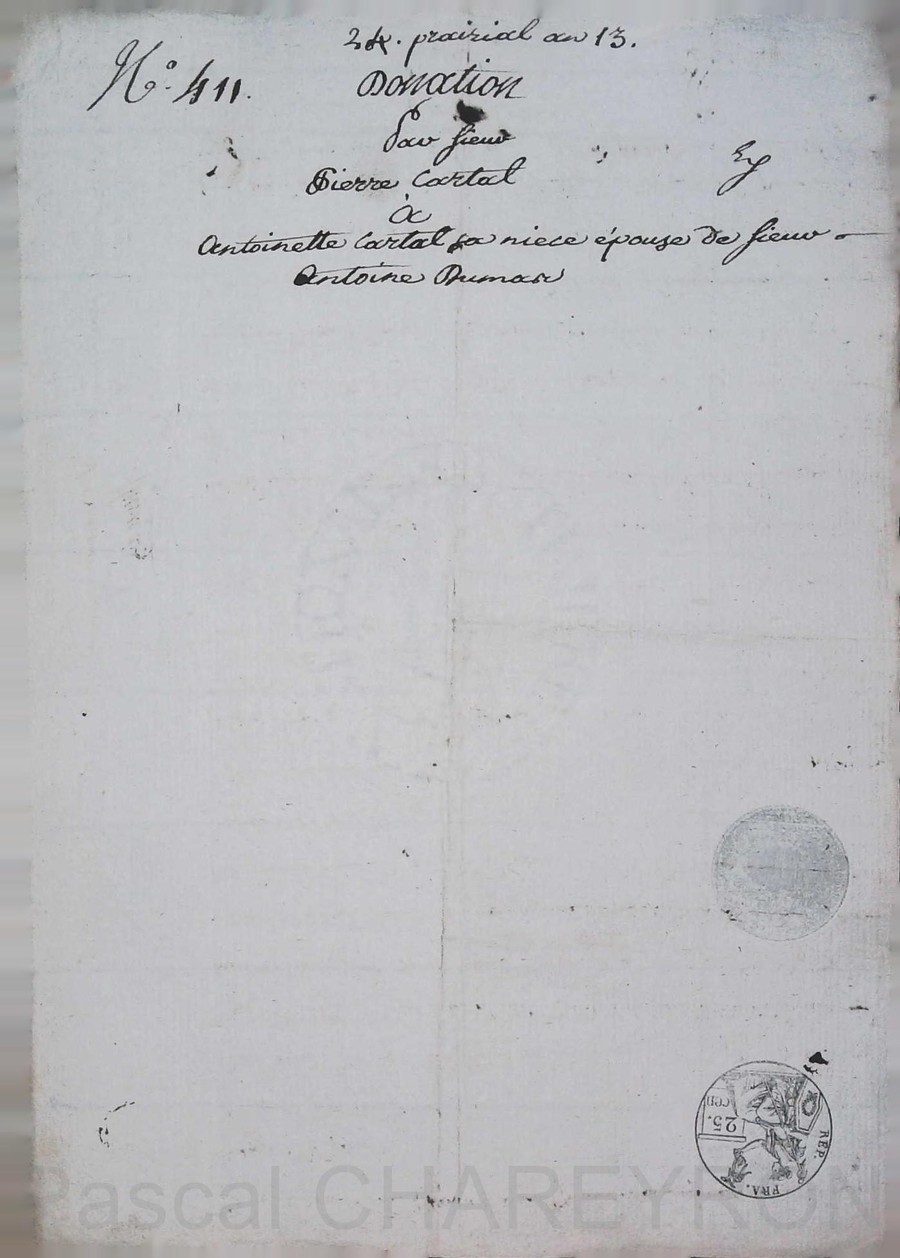 24. prairial an 13.
N.° 411.
Donation
Par sieur
Pierre Cartal
à
Antoinette Cartal sa niece épouse de sieur
Antoine Dumas
25.
CEN
REP.
FRA.
Pascal CHAREYRON